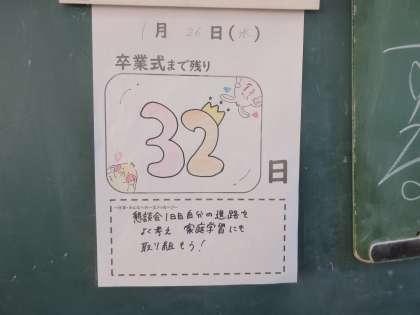 1月 26日(水)
卒業式まで残り
32
日
懇談会1日目自分の進路を
よく考え 家庭学習にも
取り組もう!